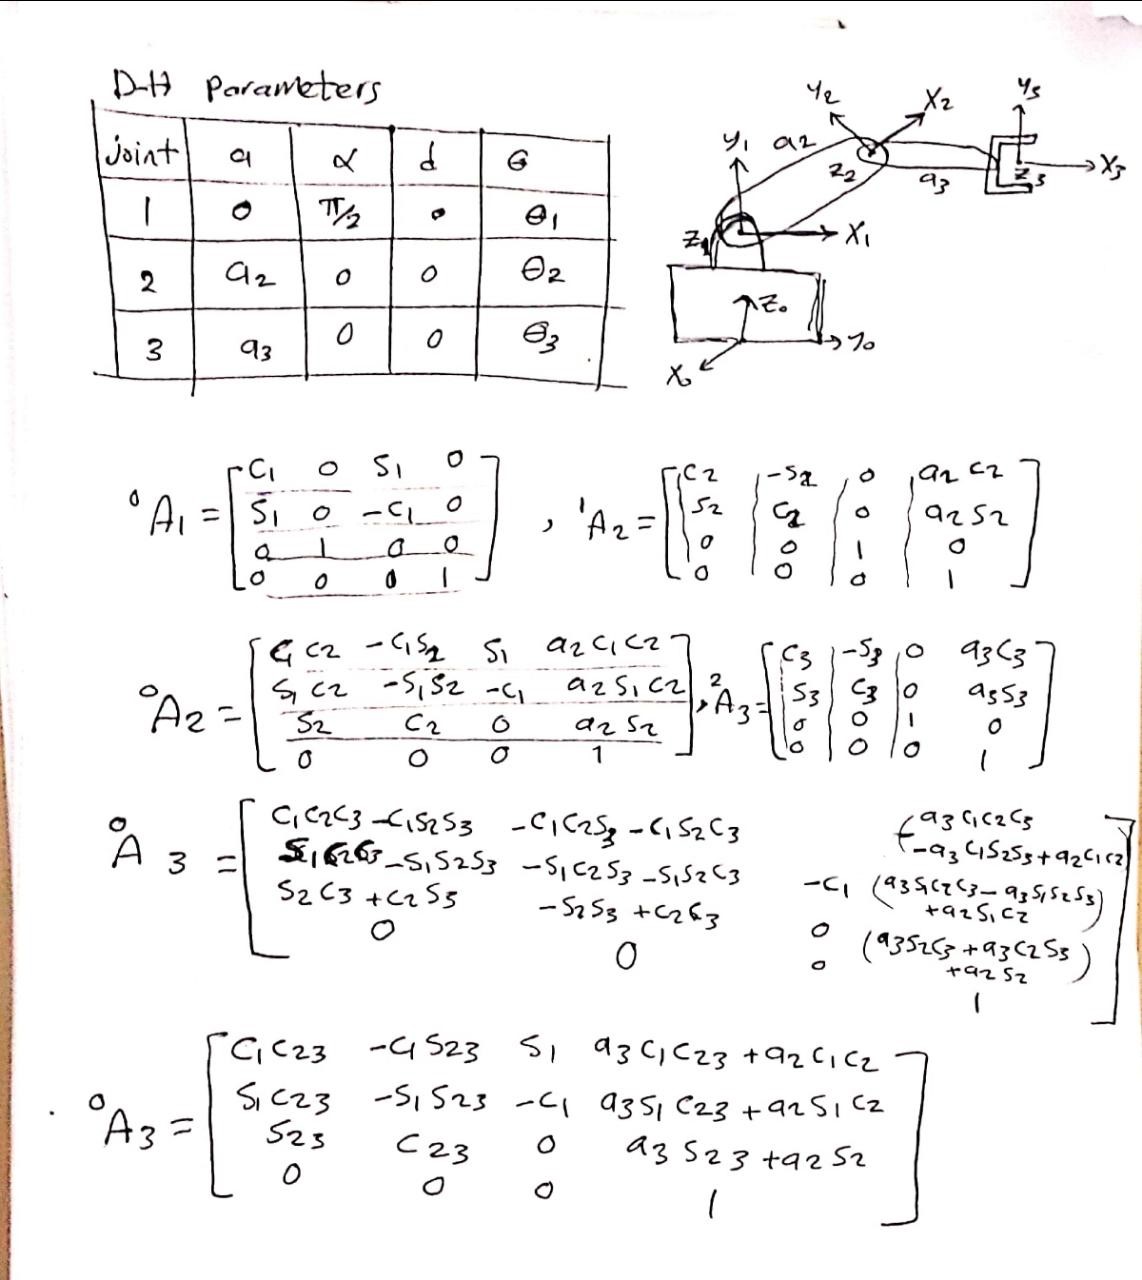 D-H Parameters
joint a α d θ
1 0 π/2 0 θ₁
2 a₂ 0 0 θ₂
3 a₃ 0 0 θ₃
y₂ X₂ y₃
y₁ a₂
z₂ a₃ z₃ X₃
z₁ X₁
z₀
y₀
X₀
⁰A₁ = [C₁ 0 S₁ 0
S₁ 0 -C₁ 0
0 1 0 0
0 0 0 1]
, ¹A₂ = [C₂ -S₂ 0 a₂C₂
S₂ C₂ 0 a₂S₂
0 0 1 0
0 0 0 1]
⁰A₂ = [C₁C₂ -C₁S₂ S₁ a₂C₁C₂
S₁C₂ -S₁S₂ -C₁ a₂S₁C₂
S₂ C₂ 0 a₂S₂
0 0 0 1]
, ²A₃ = [C₃ -S₃ 0 a₃C₃
S₃ C₃ 0 a₃S₃
0 0 1 0
0 0 0 1]
⁰A₃ = [C₁C₂C₃-C₁S₂S₃ -C₁C₂S₃-C₁S₂C₃ (a₃C₁C₂C₃
-a₃C₁S₂S₃+a₂C₁C₂
S₁C₂C₃-S₁S₂S₃ -S₁C₂S₃-S₁S₂C₃ -C₁ (a₃S₁C₂C₃-a₃S₁S₂S₃)
+a₂S₁C₂
S₂C₃+C₂S₃ -S₂S₃+C₂C₃ 0 (a₃S₂C₃+a₃C₂S₃)
+a₂S₂
0 0 0 1]
⁰A₃ = [C₁C₂₃ -C₁S₂₃ S₁ a₃C₁C₂₃+a₂C₁C₂
S₁C₂₃ -S₁S₂₃ -C₁ a₃S₁C₂₃+a₂S₁C₂
S₂₃ C₂₃ 0 a₃S₂₃+a₂S₂
0 0 0 1]